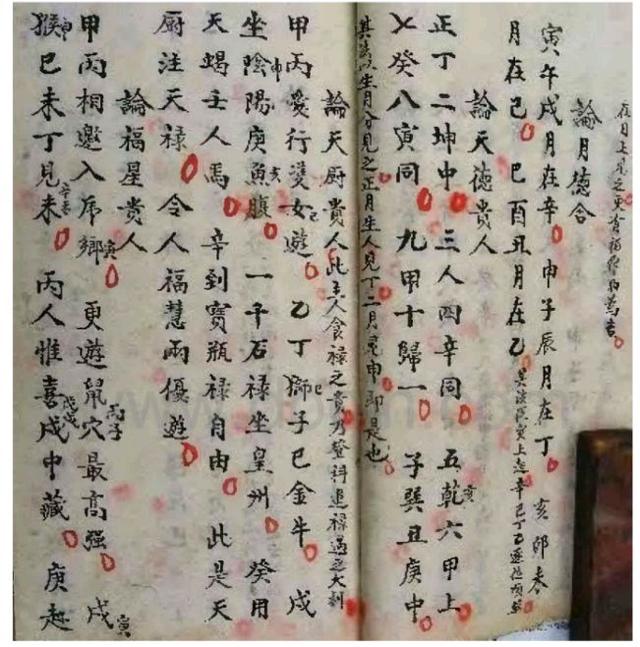 在月上見之更有福祭祀萬吉
論月德合
寅午戌月在辛 申子辰月在丁 亥卯未
月在己 巳酉丑月在乙 其法從寅上起辛己丁乙逐位順
論天德貴人
正丁二坤中 三人四辛同 五乾亥六甲上
七癸八寅同 九甲十歸一 子巽丑庚中
其法以生月分見之正月生人見丁二月見申即是也
論天厨貴人此主人食祿之貴乃登科進祿遇之大利
甲丙愛行雙女遊 乙丁獅子巳金牛 戊
坐陰陽申庚魚腹亥 一千石祿坐皇州 癸用
天蝎壬人馬 辛到寶瓶祿自由 此是天
厨注天祿 令人福慧兩優遊
論福星貴人
甲丙相邀入虎鄉寅 更遊鼠穴丙子最高强 戌
猴申巳未丁見未辛未 丙人惟喜戌戊戌中藏 庚趁寅